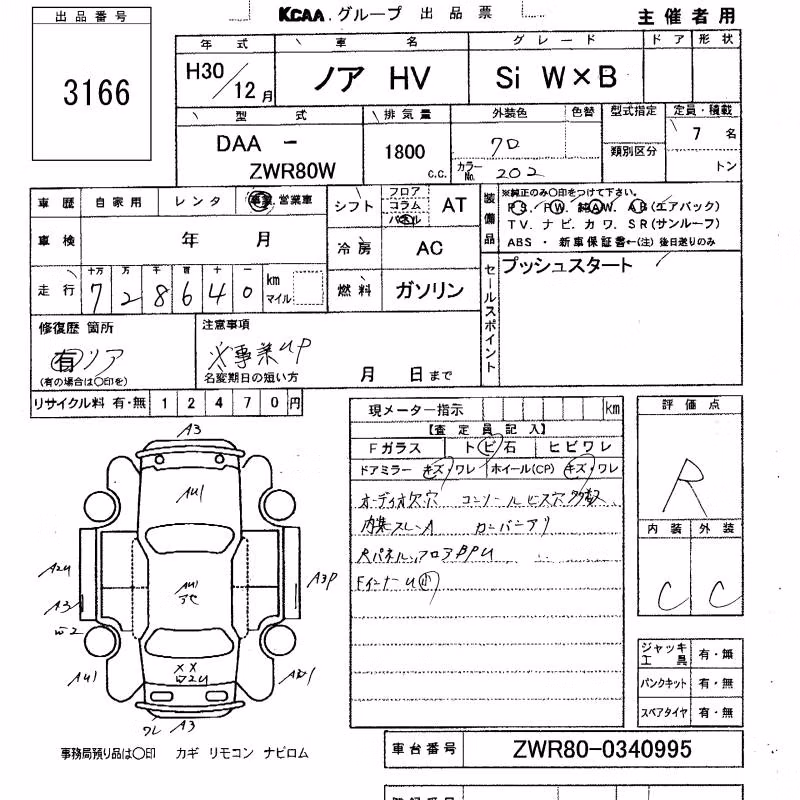 KCAA.グループ 出品票
主催者用
出品番号
3166
年式 車名 グレード ドア 形状
H30/12月 ノア HV Si W×B
型式 排気量 外装色 色替 型式指定 定員・積載
DAA - 1800 c.c. クロ 7 名
ZWR80W カラーNo. 202 類別区分 トン
車歴 自家用 レンタ 事業 営業車
シフト フロア コラム パネル AT
装備品
※純正のみ○印をつけて下さい。
PS. PW. 純AW. AB(エアバック)
TV. ナビ. カワ. SR(サンルーフ)
ABS ・ 新車保証書←(注)後日送りのみ
車検 年 月
冷房 AC
走行 十万 万 千 百 十 一
728640 km マイル
燃料 ガソリン
セールスポイント
プッシュスタート
修復歴 箇所
有 リア
(有の場合は○印を)
注意事項
※事業UP
名変期日の短い方 月 日まで
リサイクル料 有・無 12470円
現メーター指示 km
【査定員記入】
Fガラス トビ石 ヒビワレ
ドアミラー キズ・ワレ ホイール(CP) キズ・ワレ
オーディオ欠穴 コンソールビス穴多数
内装スレ-A
RパネルフロアBPU
FインナーU小
評価点
R
内装 外装
C C
A3
AU1
AU1
A2U
A3
A3P
W2
AU1
XX
W2U
ワレ A3
ジャッキ工具 有・無
パンクキット 有・無
スペアタイヤ 有・無
事務局預り品は○印 カギ リモコン ナビロム
車台番号 ZWR80-0340995